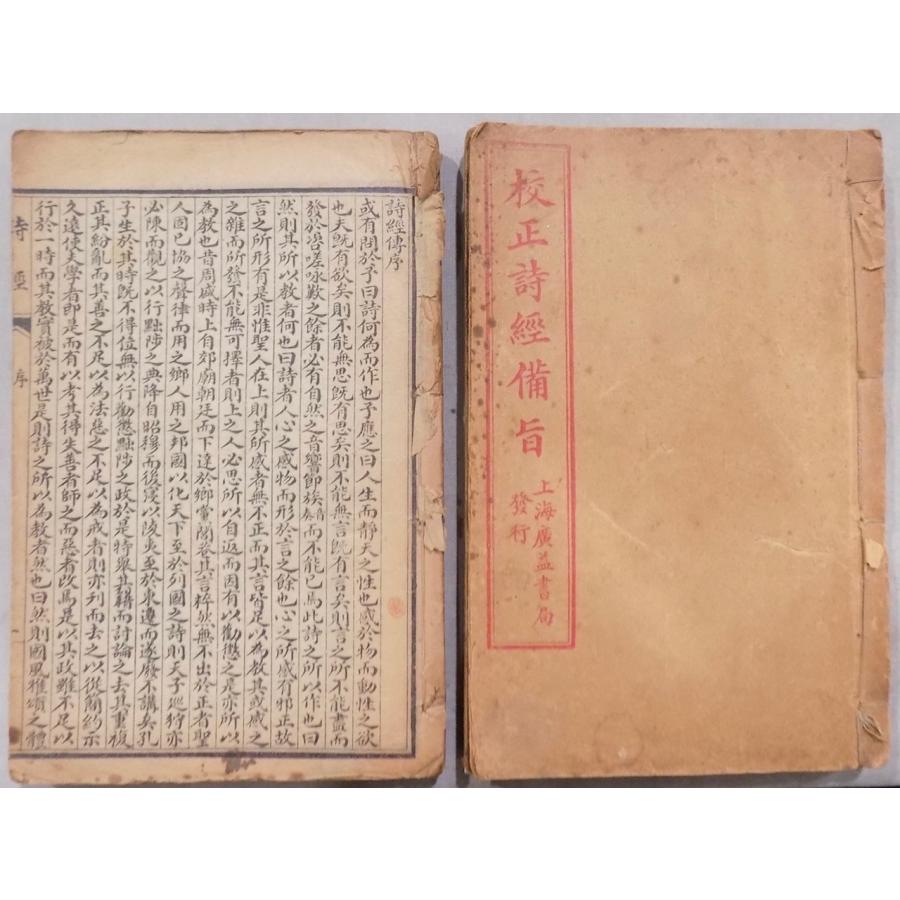 校正詩經備旨
上海廣益書局
發行
詩經傳序
或有問於予曰詩何為而作也予應之曰人生而靜天之性也感於物而動性之欲
也夫既有欲矣則不能無思既有思矣則不能無言既有言矣則言之所不能盡而
發於咨嗟咏歎之餘者必有自然之音響節族音奏而不能已焉此詩之所以作也曰
然則其所以教者何也曰詩者人心之感物而形於言之餘也心之所感有邪正故
言之所形有是非惟聖人在上則其所感者無不正而其言皆足以為教其或感之
之雜而所發不能無可擇者則上之人必思所以自返而因有以勸懲之是亦所以
為教也昔周盛時上自郊廟朝廷而下達於鄉黨閭巷其言粹然無不出於正者聖
人固已協之聲律而用之鄉人用之邦國以化天下至於列國之詩則天子巡狩亦
必陳而觀之以行黜陟之典降自昭穆而後寖以陵夷至於東遷而遂廢不講矣孔
子生於其時既不得位無以行勸懲黜陟之政於是特舉其籍而討論之去其重複
正其紛亂而其善之不足以為法惡之不足以為戒者則亦刋而去之以從簡約示
久遠使夫學者即是而有以考其得失善者師之而惡者改焉是以其政雖不足以
行於一時而其教實被於萬世是則詩之所以為教者然也曰然則國風雅頌之體
詩經 序 一